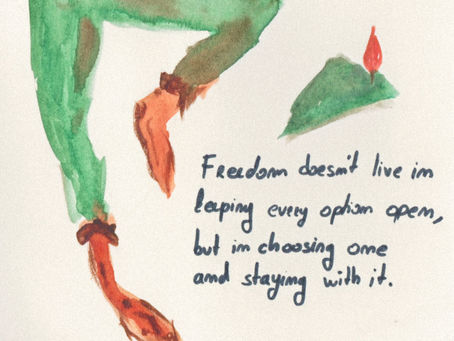 Freedom doesn't live in
keeping every option open,
but in choosing one
and staying with it.